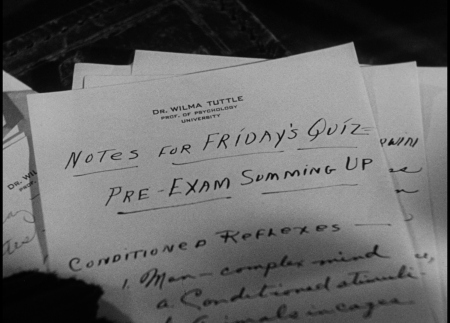 DR. WILMA TUTTLE
PROF. OF PSYCHOLOGY
UNIVERSITY
NOTES FOR FRIDAY'S QUIZ
PRE-EXAM SUMMING UP
CONDITIONED REFLEXES —
1. Man — complex mind
a. Conditioned stimuli-
Animals in cages